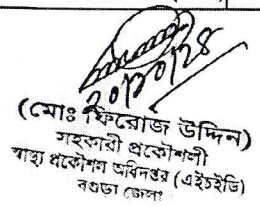 ২০/১০/২৪
(মোঃ ফিরোজ উদ্দিন)
সহকারী প্রকৌশলী
স্বাস্থ্য প্রকৌশল অধিদপ্তর (এইচইডি)
বগুড়া জেলা